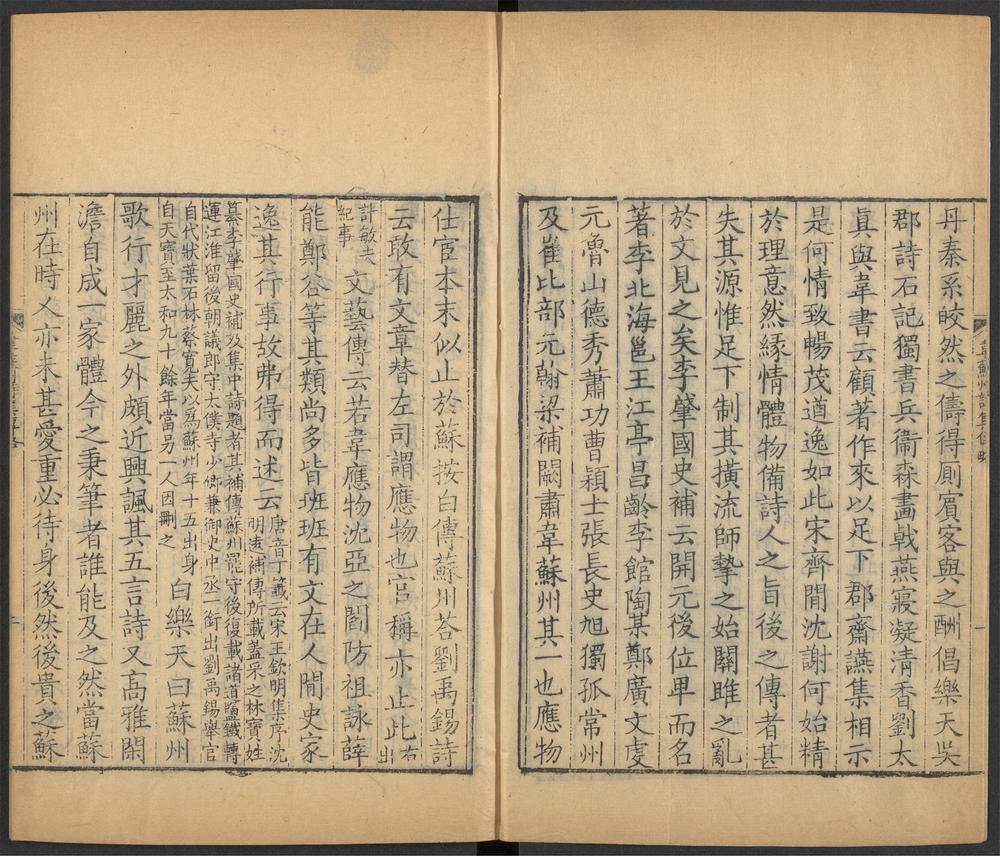 丹秦系皎然之儔得厠賓客與之酬倡樂天吳
郡詩石記獨書兵衞森畫戟燕寢凝清香劉太
眞與韋書云顧著作來以足下郡齋讌集相示
是何情致暢茂遒逸如此宋齊閒沈謝何始精
於理意然緣情體物備詩人之旨後之傳者甚
失其源惟足下制其橫流師摯之始關雎之亂
於文見之矣李肇國史補云開元後位卑而名
著李北海邕王江亭昌齡李館陶某鄭廣文虔
元魯山德秀蕭功曹潁士張長史旭獨孤常州
及崔比部元翰梁補闕肅韋蘇州其一也應物
仕宦本末似止於蘇按白傅蘇州荅劉禹錫詩
云敢有文章替左司謂應物也官稱亦止此右出
計敏夫紀事
文藝傳云若韋應物沈亞之閻防祖詠薛
能鄭谷等其類尚多皆班班有文在人閒史家
逸其行事故弗得而述云
唐音丁籤云宋王欽明集序沈
明遠補傳所載蓋采之林寶姓
纂李肇國史補及集中詩題者其補傳蘇州罷守後復載諸道鹽鐵轉
運江淮留後朝議郎守太僕寺少卿兼御史中丞一銜出劉禹錫舉官
自代狀葉石林蔡寬夫以爲蘇州年十五出身
自天寶至太和九十餘年當另一人因刪之
白樂天曰蘇州
歌行才麗之外頗近興諷其五言詩又高雅閑
澹自成一家體今之秉筆者誰能及之然當蘇
州在時人亦未甚愛重必待身後然後貴之蘇